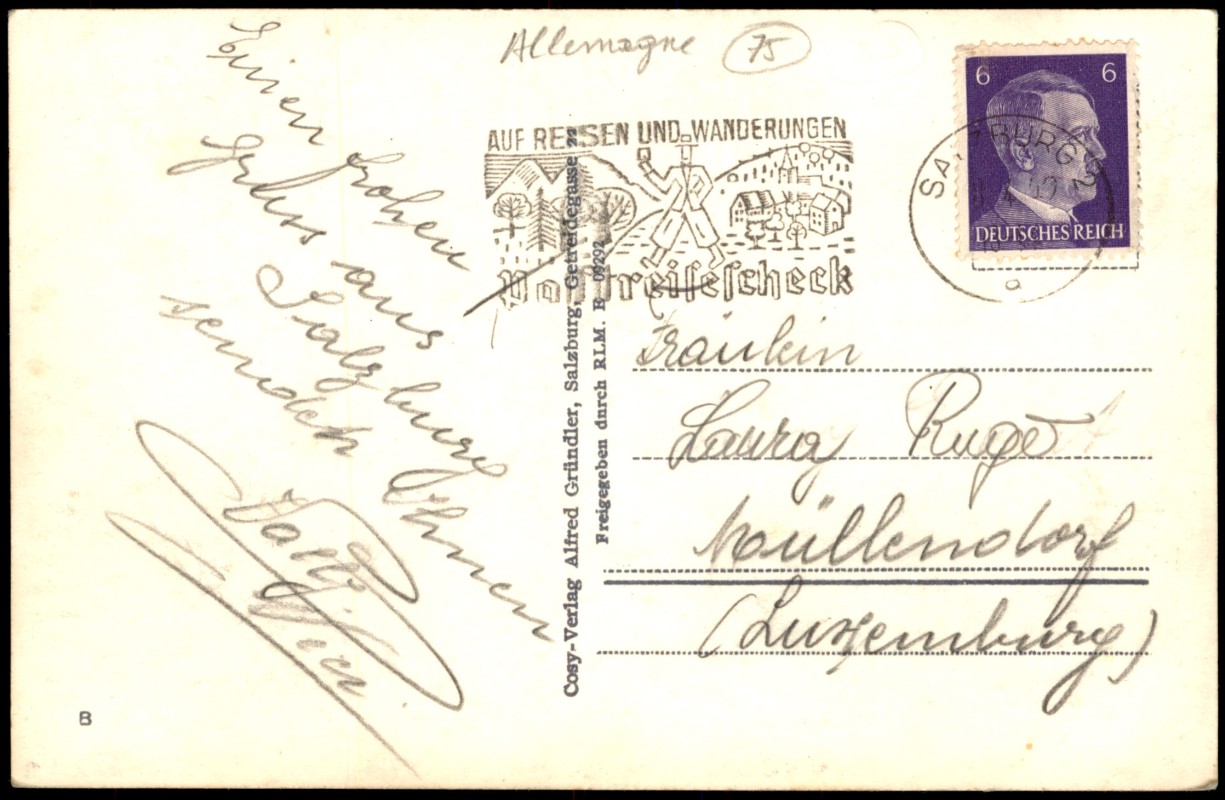 Allemagne 75
AUF REISEN UND WANDERUNGEN
Postreisescheck
SALZBURG 2
a
6 6
DEUTSCHES REICH
Einen frohen
Gruss aus
Salzburg
sendet Ihnen
Fräulein
Laura
Müllendorf
(Luxemburg)
Cosy-Verlag Alfred Gründler, Salzburg, Getreidegasse 22
Freigegeben durch RLM. B 09292
B